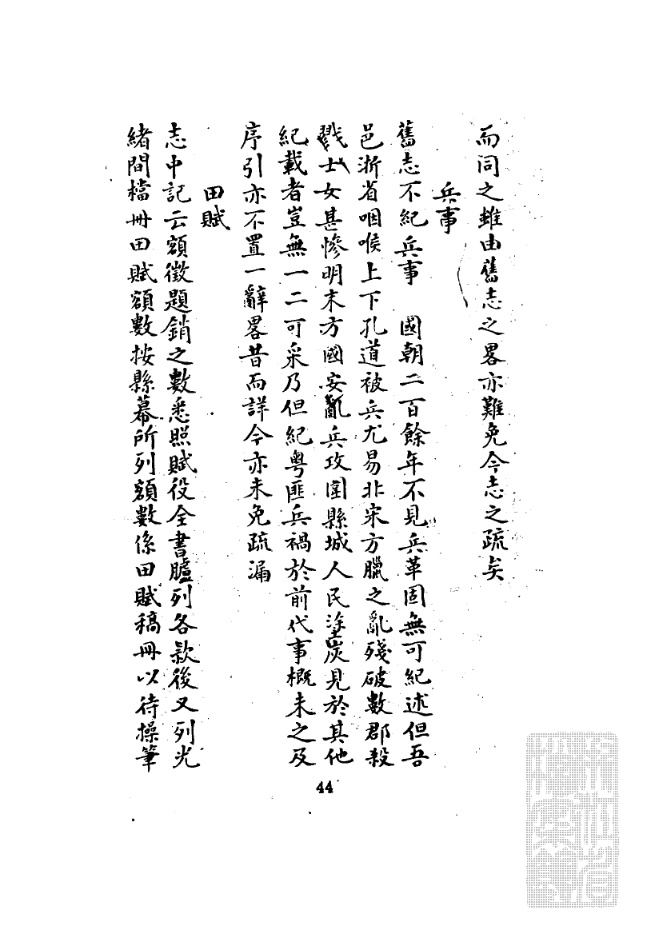 而同之雖由舊志之畧亦難免今志之疏矣
兵事
舊志不紀兵事　國朝二百餘年不見兵革固無可紀述但吾
邑浙省咽喉上下孔道被兵尤易北宋方臘之亂殘破數郡殺
戮士女甚慘明末方國安亂兵攻圍縣城人民塗炭見於其他
紀載者豈無一二可采乃但紀粵匪兵禍於前代事概未之及
序引亦不置一辭畧昔而詳今亦未免疏漏
田賦
志中記云額徵題銷之數悉照賦役全書臚列各款後又列光
緒間檔冊田賦額數按縣幕所列額數係田賦稿冊以待操筆
44